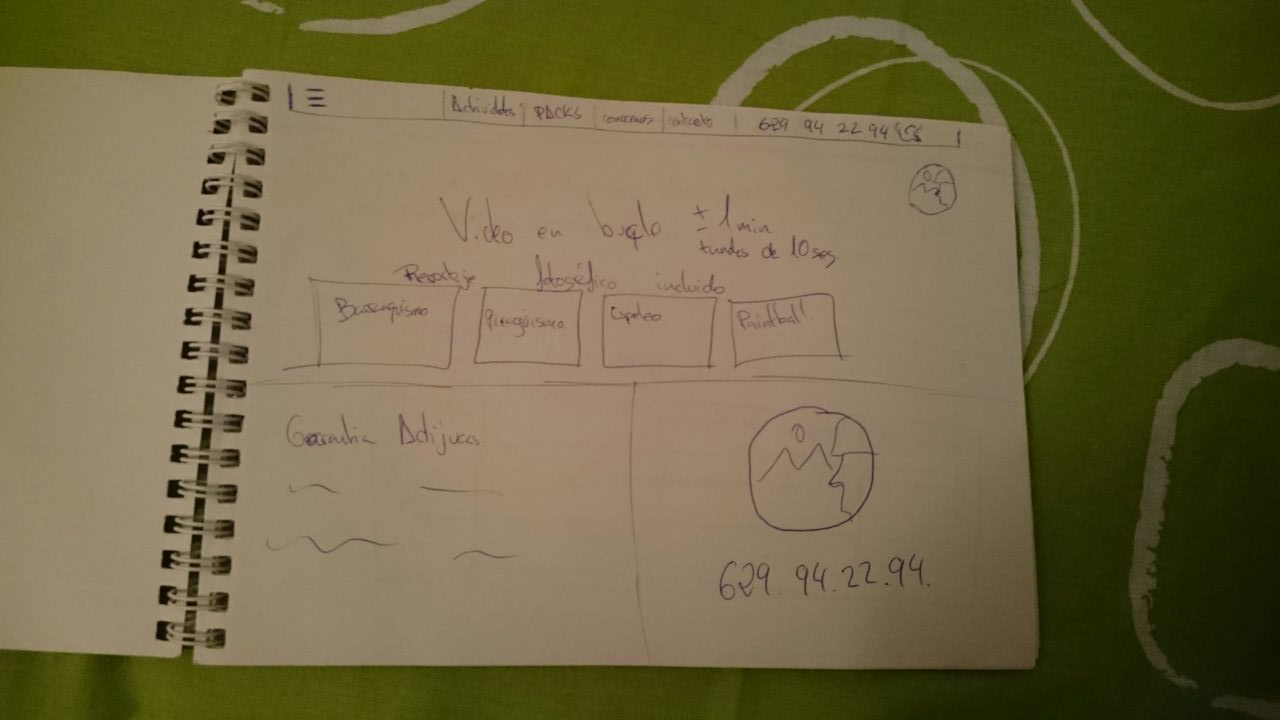 Actividades PACKS conocenos contacto 629 94 22 94
Video en bucle ± 1 min
tandas de 10 seg
Reportaje fotográfico incluido
Barranquismo Piragüismo Espeleo Paintball
Garantia Actijucar
629.94.22.94.